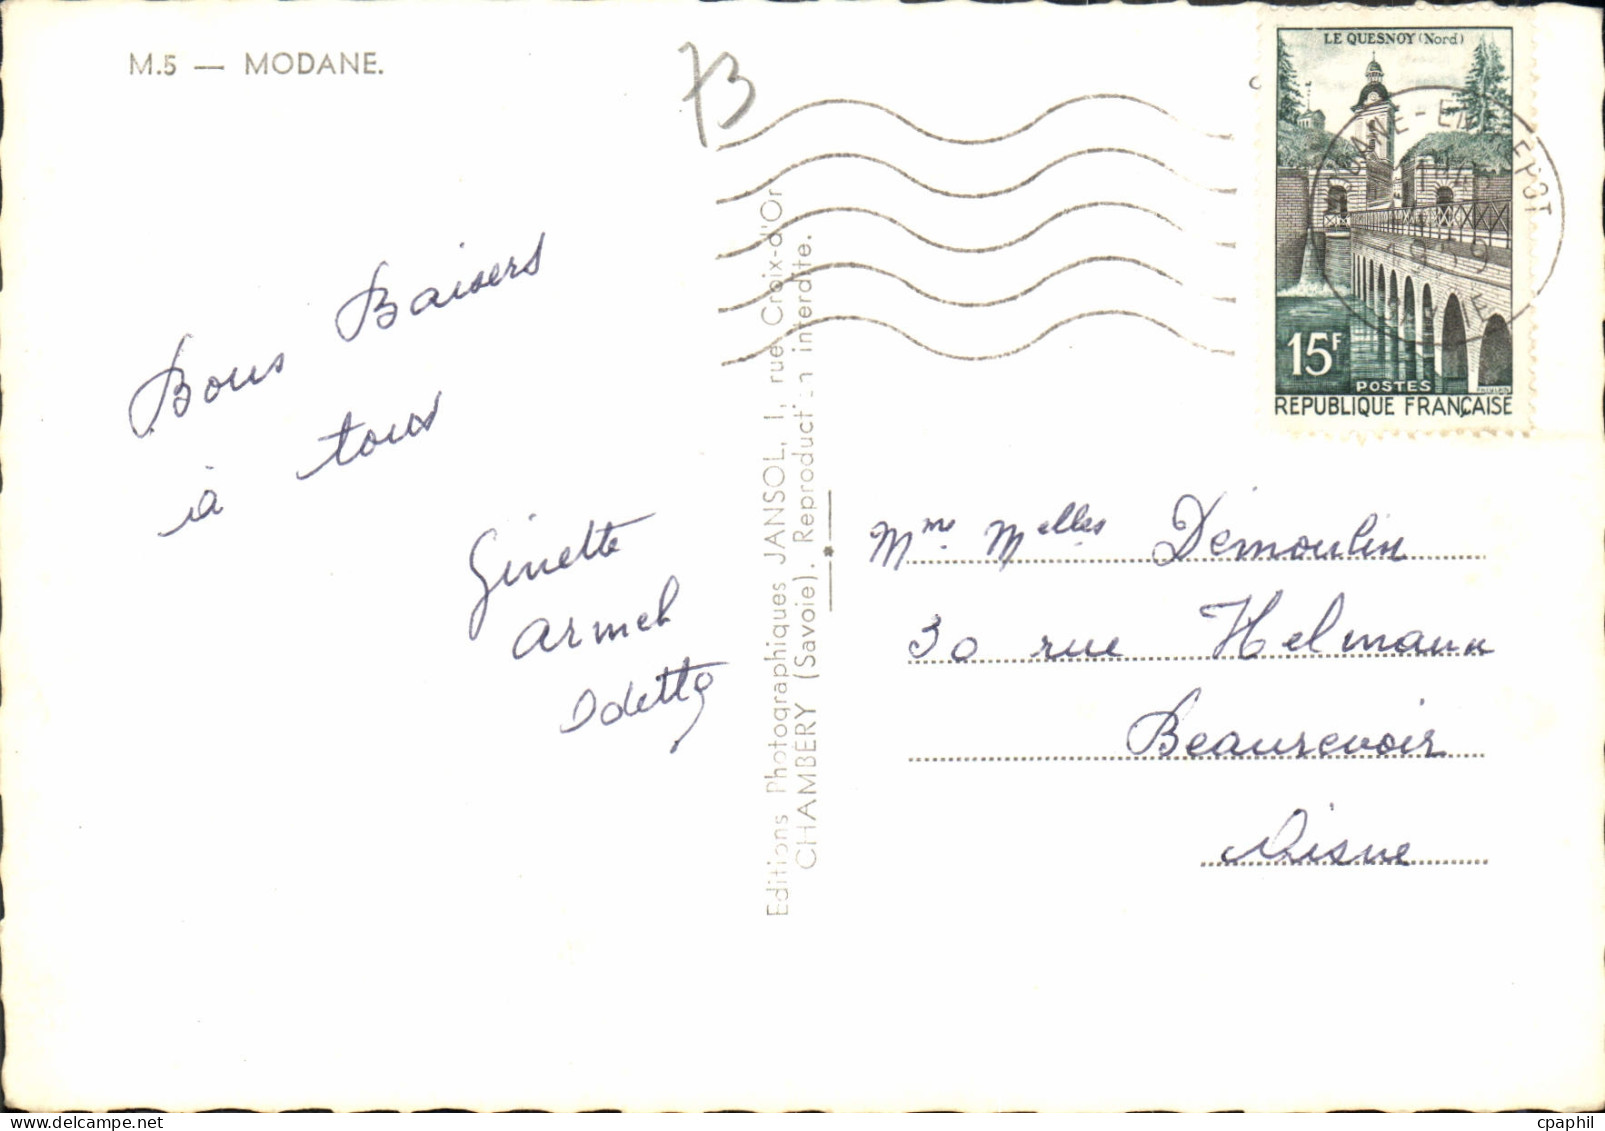 M.5 — MODANE.
73
Bons Baisers
à tous
Ginette
Armel
Odette
Editions Photographiques JANSOL, 1, rue Croix-d'Or
CHAMBERY (Savoie). Reproduction interdite.
LE QUESNOY (Nord)
15F
POSTES
REPUBLIQUE FRANÇAISE
1959
Mme Melles Démoulin
30 rue Helmann
Beaurevoir
Aisne
cpaphil